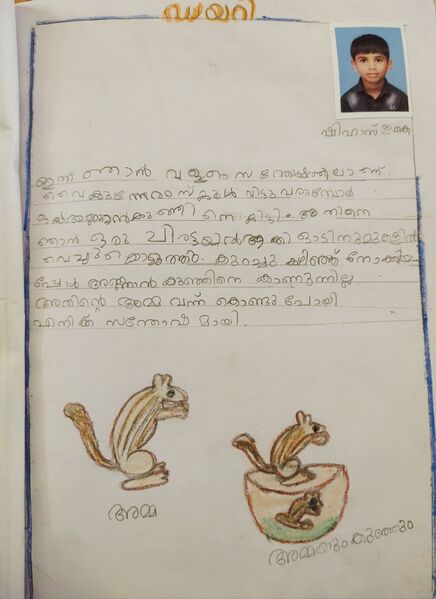 ഡയറി
ഷിഹാൻ ഇ കെ
ഇന്ന് ഞാൻ വളരെ സന്തോഷത്തിലാണ്.
വൈകുന്നേരം സ്കൂൾ വിട്ടു വരുമ്പോൾ
ഒരു അണ്ണാൻകുഞ്ഞി നെ കിട്ടി. അതിനെ
ഞാൻ ഒരു ചിരട്ടയിൽ ആക്കി ഓടിനുമുകളിൽ
വെച്ചു കൊടുത്തു. കുറച്ചു കഴിഞ്ഞ് നോക്കിയ
പ്പോൾ അണ്ണാൻ കുഞ്ഞിനെ കാണുന്നില്ല.
അതിന്റെ അമ്മ വന്ന് കൊണ്ടു പോയി
എനിക്ക് സന്തോഷമായി.
അമ്മ
അമ്മയും കുഞ്ഞും